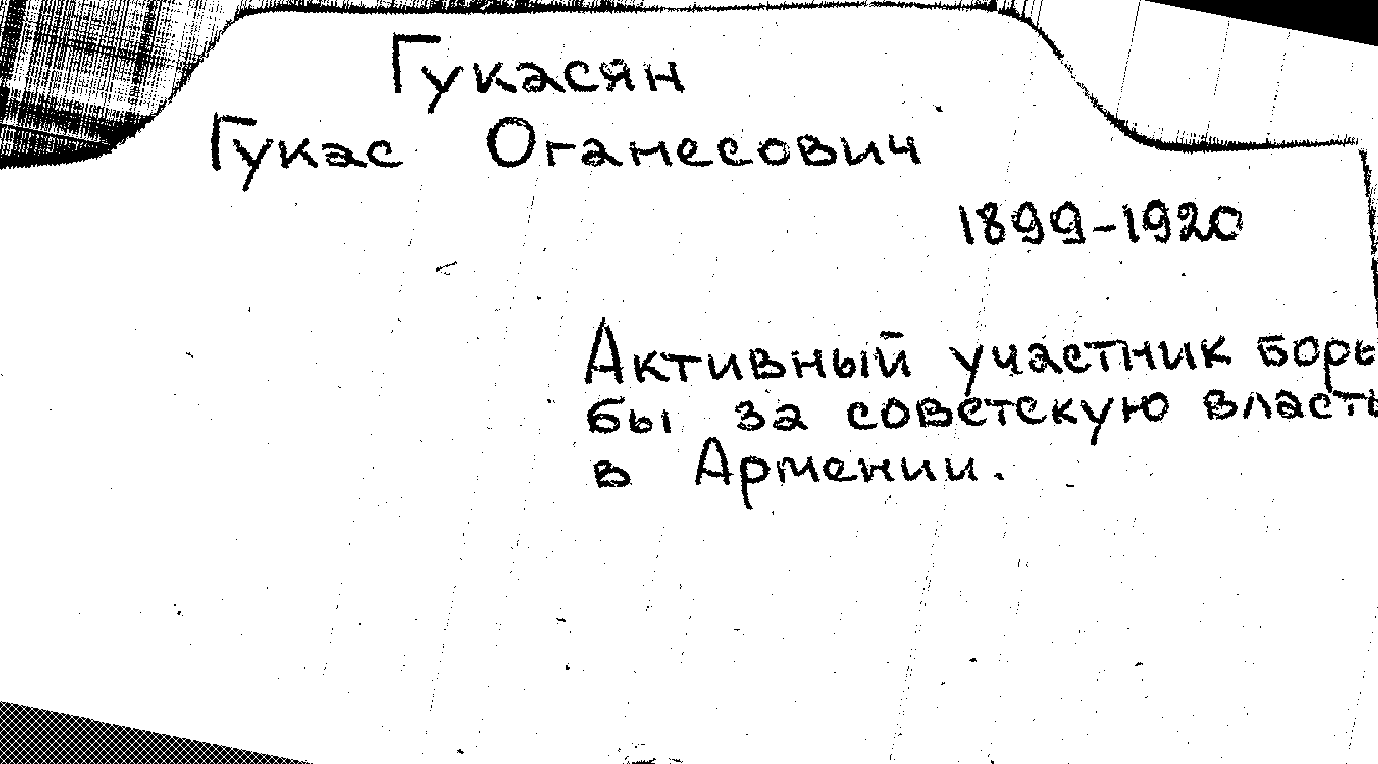 Гукасян
Гукас Оганесович
1899-1920
Активный участник борь
бы за советскую власть
в Армении.